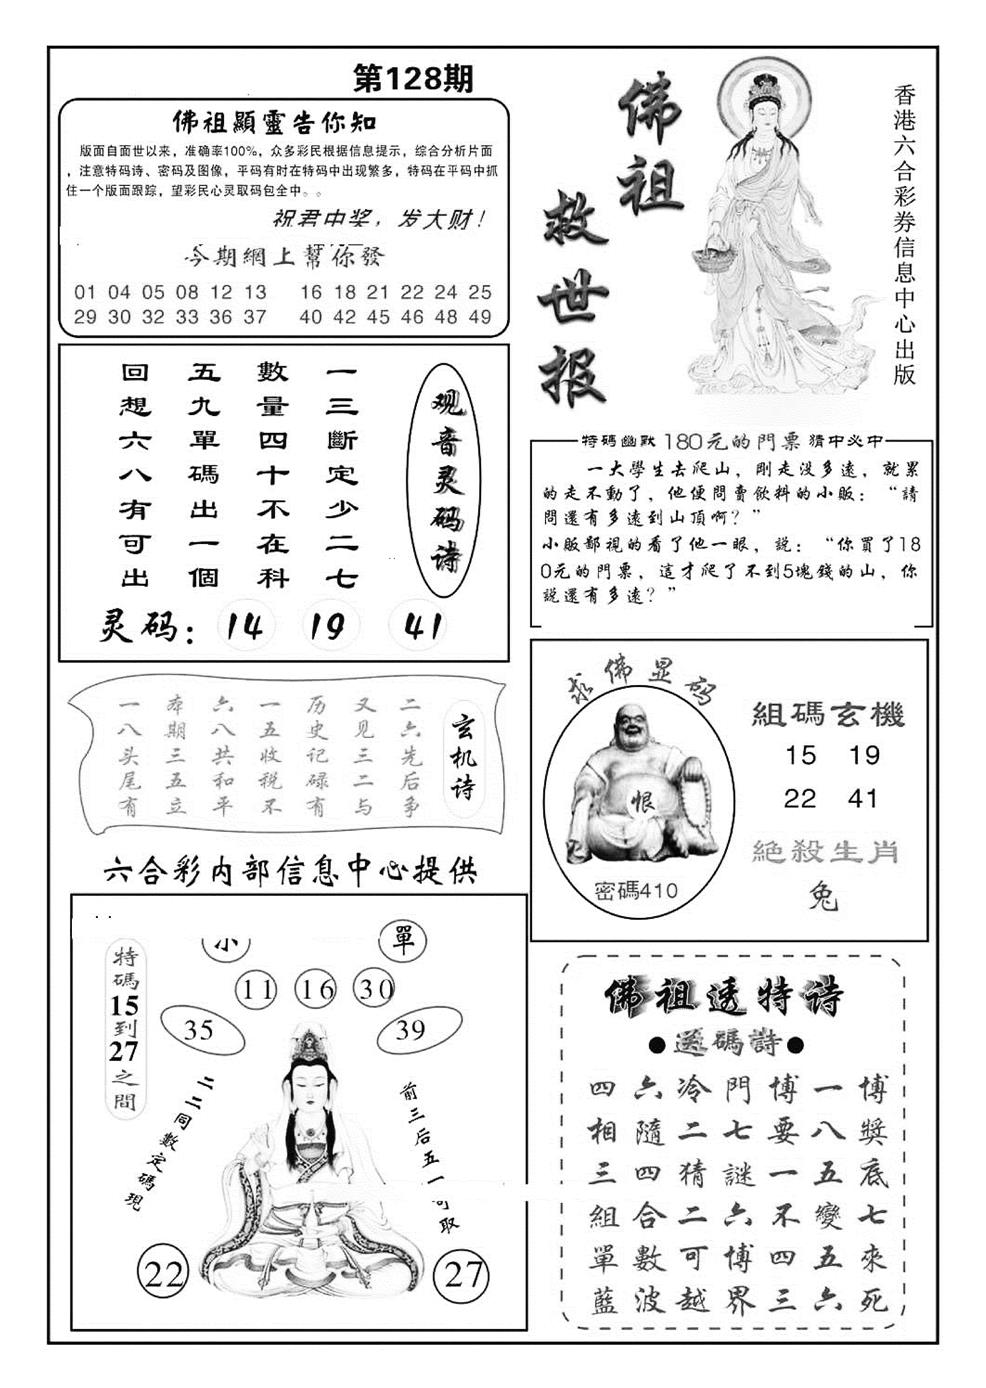 第128期
佛祖顯靈告你知
版面自面世以来，准确率100%，众多彩民根据信息提示，综合分析片面
，注意特码诗、密码及图像，平码有时在特码中出现繁多，特码在平码中抓
住一个版面跟踪，望彩民心灵取码包全中。。
祝君中奖，发大财！
今期網上幫你發
01 04 05 08 12 13 16 18 21 22 24 25
29 30 32 33 36 37 40 42 45 46 48 49
佛祖
救世报
香港六合彩券信息中心出版
观音灵码诗
一三斷定少二七
數量四十不在科
五九單碼出一個
回想六八有可出
灵码：14 19 41
特碼幽默180元的門票猜中必中
一大學生去爬山，剛走没多遠，就累
的走不動了，他便問賣飲料的小販：“請
問還有多遠到山頂啊？”
小販鄙視的看了他一眼，説：“你買了18
0元的門票，這才爬了不到5塊錢的山，你
説還有多遠？”
玄机诗
二六先后争
又见三二与
历史记碌有
一五收税不
六八共和平
本期三五立
一八头尾有
求佛显码
恨
密碼410
組碼玄機
15 19
22 41
絕殺生肖
兔
六合彩内部信息中心提供
特碼15到27之間
小
單
11 16 30
35
39
二二同數定碼現
前三后五一
取
22
27
佛祖透特诗
●送碼詩●
博獎底七來死
一八五變五六
博要一不四三
門七謎六博界
冷二猜二可越
六隨四合數波
四相三組單藍